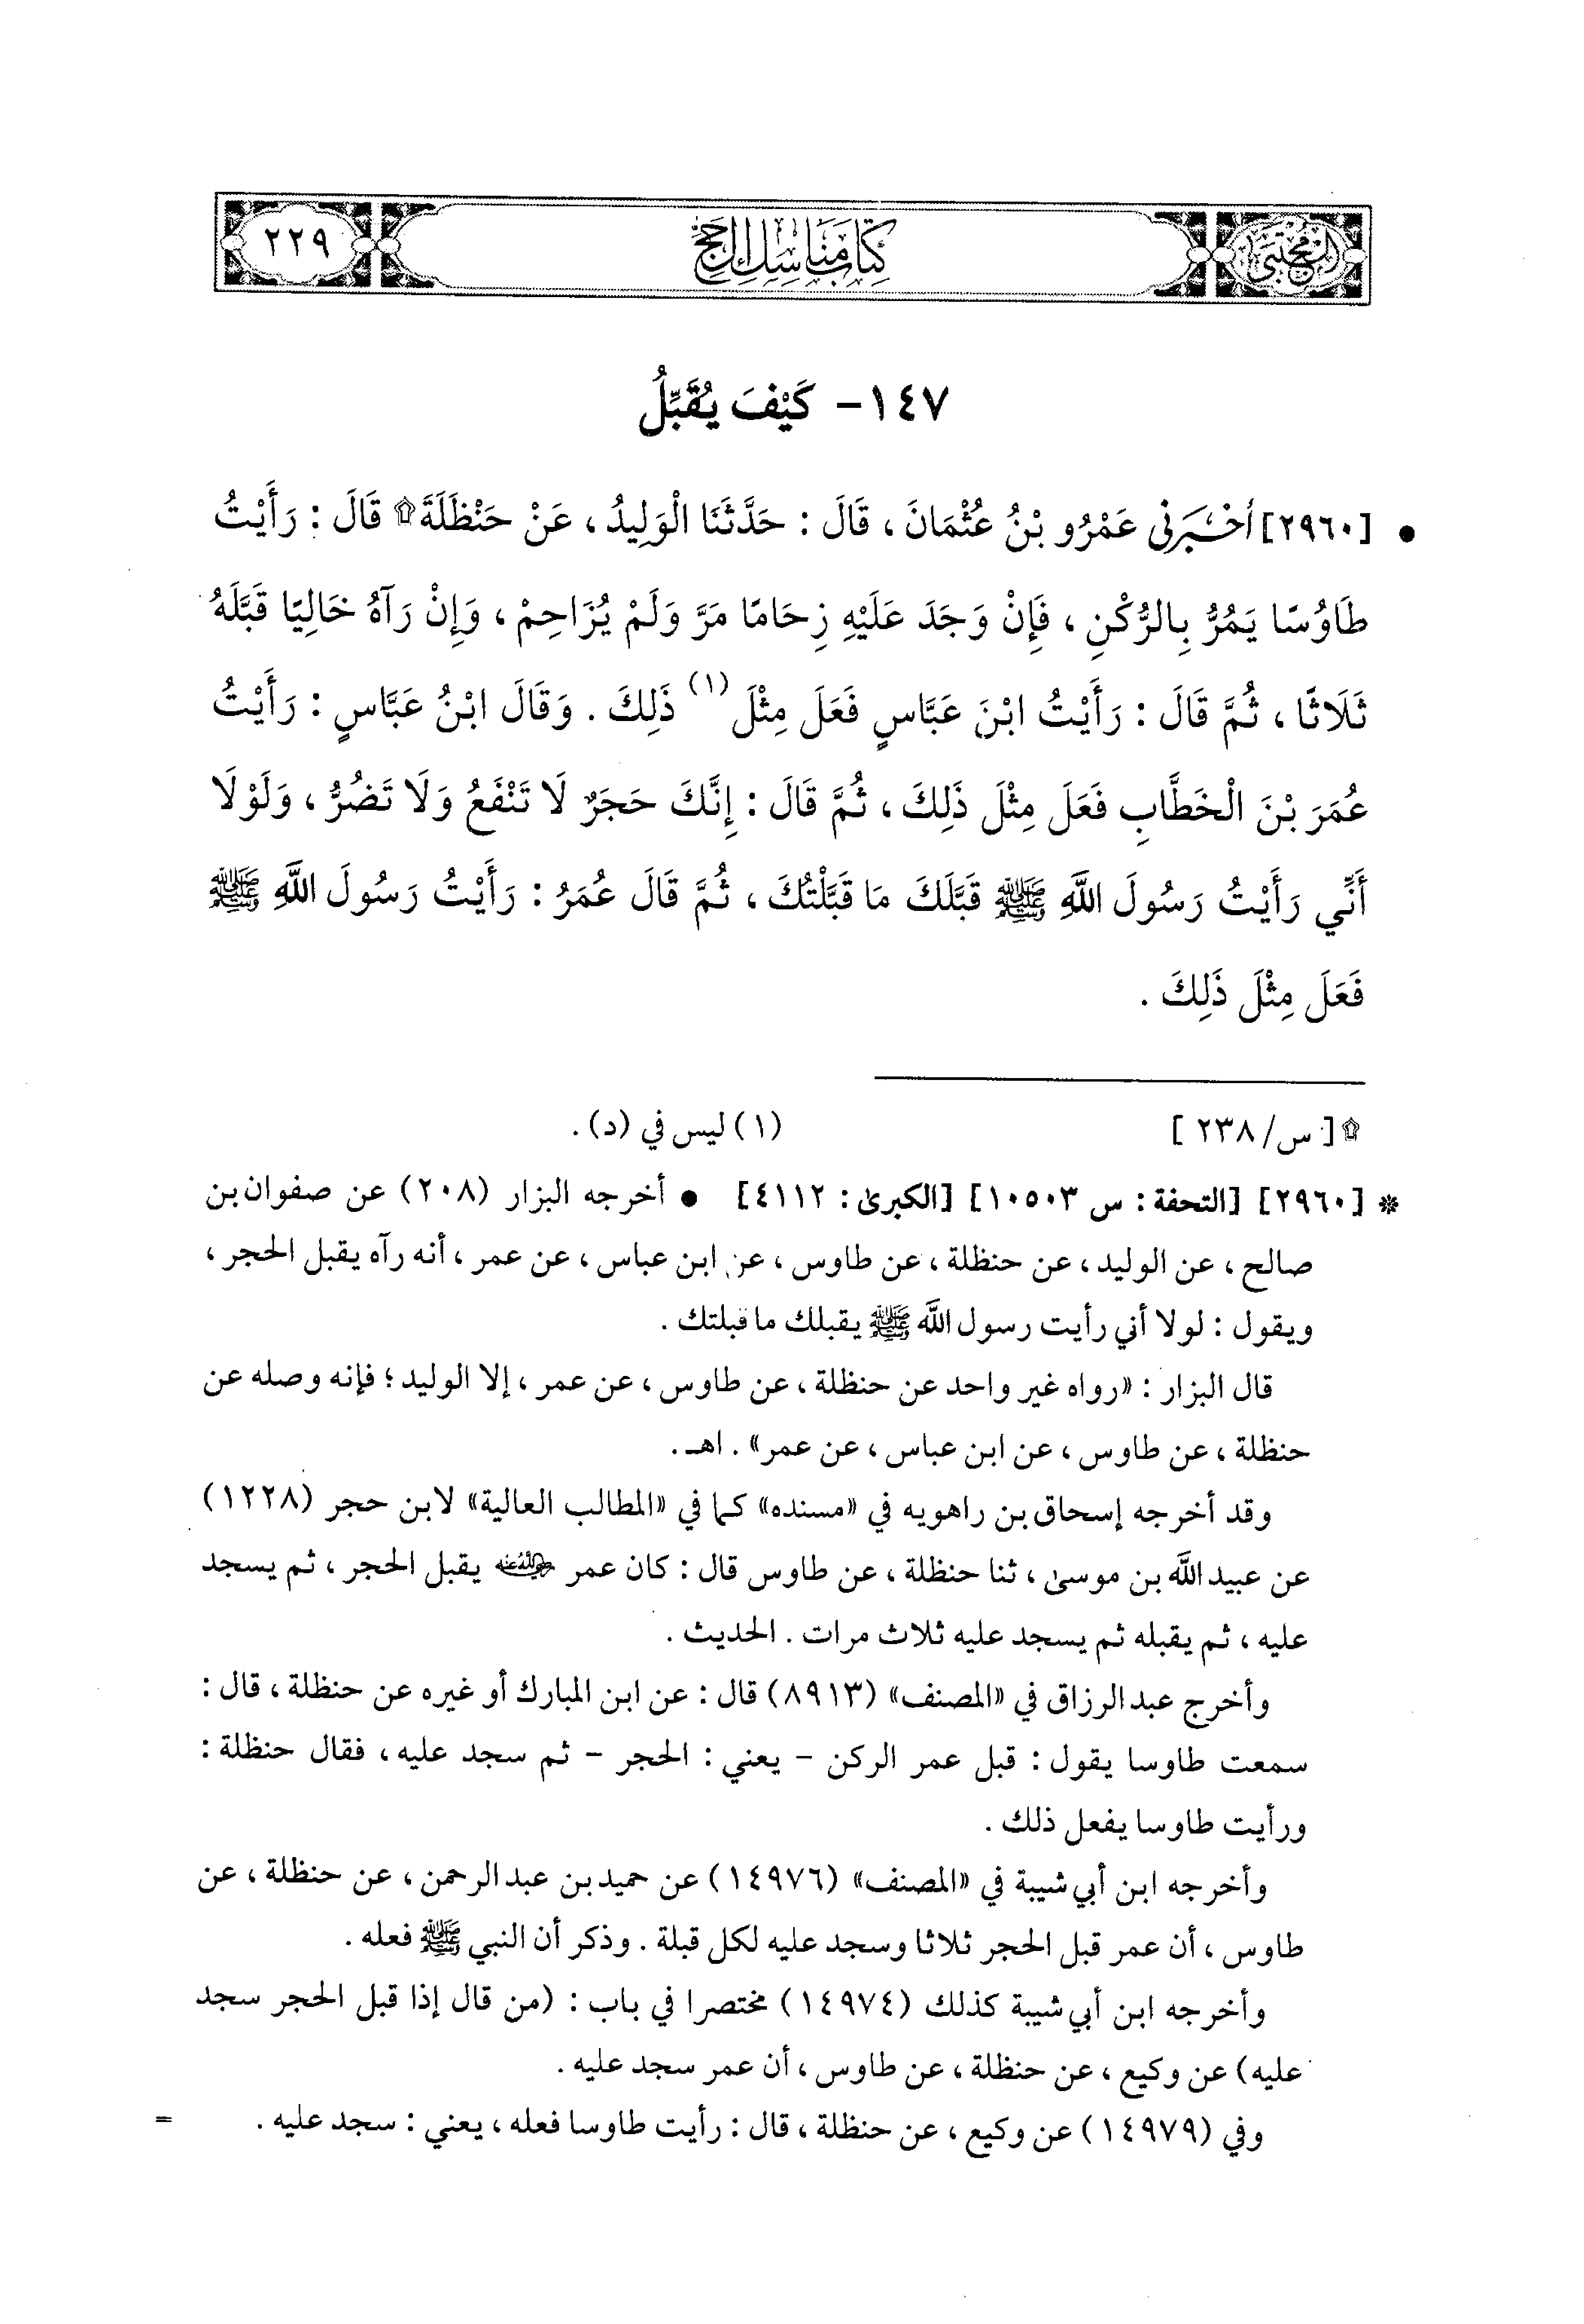 المجتبى
كتاب مناسك الحج
٢٢٩
١٤٧- كَيْفَ يُقَبِّلُ
• [٢٩٦٠] أَخْبَرَنِي عَمْرُو بْنُ عُثْمَانَ ، قَالَ : حَدَّثَنَا الْوَلِيدُ ، عَنْ حَنْظَلَةَ۩ قَالَ : رَأَيْتُ
طَاوُسًا يَمُرُّ بِالرُّكْنِ ، فَإِنْ وَجَدَ عَلَيْهِ زِحَامًا مَرَّ وَلَمْ يُزَاحِمْ ، وَإِنْ رَآهُ خَالِيًا قَبَّلَهُ
ثَلَاثًا ، ثُمَّ قَالَ : رَأَيْتُ ابْنَ عَبَّاسٍ فَعَلَ مِثْلَ (١) ذَلِكَ . وَقَالَ ابْنُ عَبَّاسٍ : رَأَيْتُ
عُمَرَ بْنَ الْخَطَّابِ فَعَلَ مِثْلَ ذَلِكَ ، ثُمَّ قَالَ : إِنَّكَ حَجَرٌ لَا تَنْفَعُ وَلَا تَضُرُّ ، وَلَوْلَا
أَنِّي رَأَيْتُ رَسُولَ اللَّهِ ﷺ قَبَّلَكَ مَا قَبَّلْتُكَ ، ثُمَّ قَالَ عُمَرُ : رَأَيْتُ رَسُولَ اللَّهِ ﷺ
فَعَلَ مِثْلَ ذَلِكَ .
۩ [ س/ ٢٣٨ ]
(١) ليس في (د) .
* [٢٩٦٠] [التحفة : س ١٠٥٠٣] [الكبرىٰ : ٤١١٢] • أخرجه البزار (٢٠٨) عن صفوان بن
صالح ، عن الوليد ، عن حنظلة ، عن طاوس ، عن ابن عباس ، عن عمر ، أنه رآه يقبل الحجر ،
ويقول : لولا أني رأيت رسول اللَّه ﷺ يقبلك ما قبلتك .
قال البزار : «رواه غير واحد عن حنظلة ، عن طاوس ، عن عمر ، إلا الوليد ؛ فإنه وصله عن
حنظلة ، عن طاوس ، عن ابن عباس ، عن عمر» . اهـ .
وقد أخرجه إسحاق بن راهويه في «مسنده» كما في «المطالب العالية» لابن حجر (١٢٢٨)
عن عبيد اللَّه بن موسىٰ ، ثنا حنظلة ، عن طاوس قال : كان عمر رضي الله عنه يقبل الحجر ، ثم يسجد
عليه ، ثم يقبله ثم يسجد عليه ثلاث مرات . الحديث .
وأخرج عبد الرزاق في «المصنف» (٨٩١٣) قال : عن ابن المبارك أو غيره عن حنظلة ، قال :
سمعت طاوسا يقول : قبل عمر الركن - يعني : الحجر - ثم سجد عليه ، فقال حنظلة :
ورأيت طاوسا يفعل ذلك .
وأخرجه ابن أبي شيبة في «المصنف» (١٤٩٧٦) عن حميد بن عبد الرحمن ، عن حنظلة ، عن
طاوس ، أن عمر قبل الحجر ثلاثا وسجد عليه لكل قبلة . وذكر أن النبي ﷺ فعله .
وأخرجه ابن أبي شيبة كذلك (١٤٩٧٤) مختصرا في باب : (من قال إذا قبل الحجر سجد
عليه) عن وكيع ، عن حنظلة ، عن طاوس ، أن عمر سجد عليه .
وفي (١٤٩٧٩) عن وكيع ، عن حنظلة ، قال : رأيت طاوسا فعله ، يعني : سجد عليه . =